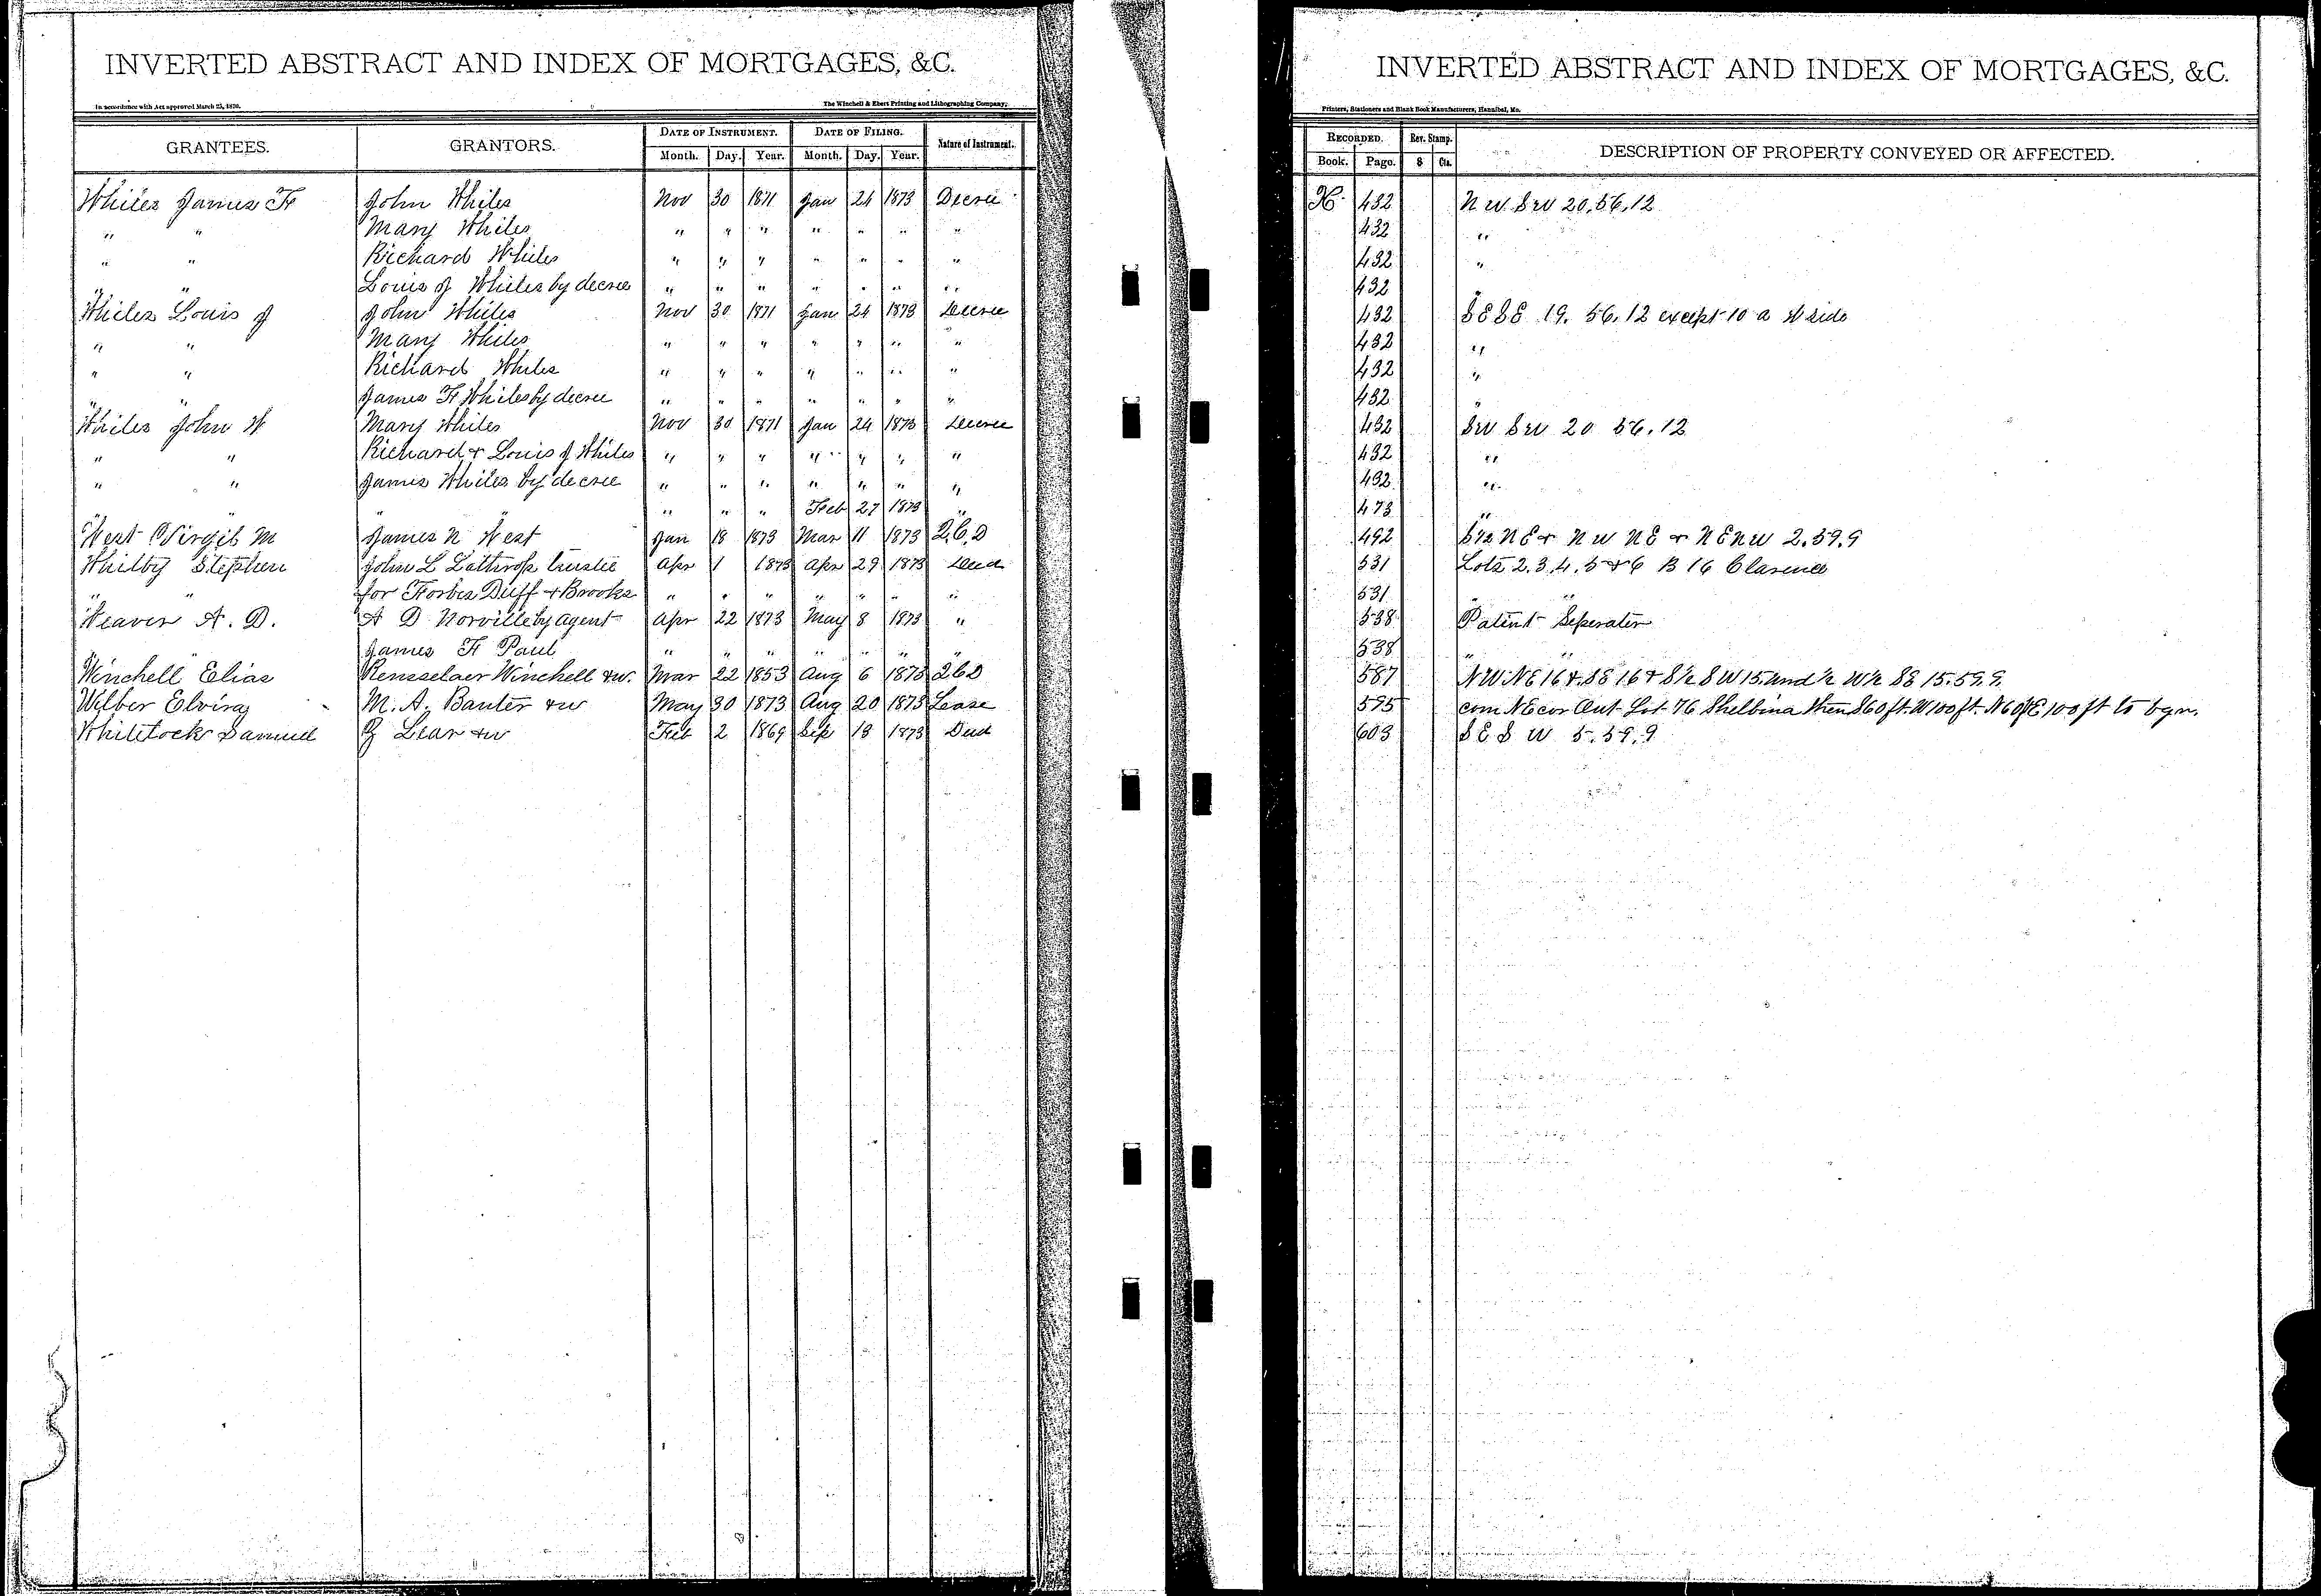 INVERTED ABSTRACT AND INDEX OF MORTGAGES, &C.
In accordance with Act approved March 25, 1870.
The Winchell & Ebert Printing and Lithographing Company,
GRANTEES. GRANTORS. DATE OF INSTRUMENT. DATE OF FILING. Nature of Instrument.
Month. Day. Year. Month. Day. Year.
Whiles James F John Whiles Nov 30 1871 Jan 24 1873 Decree
" " Mary Whiles " " " " " " "
" " Richard Whiles " " " " " " "
" " Louis J Whiles by decree " " " " " " "
Whiles Louis J John Whiles Nov 30 1871 Jan 24 1873 Decree
" " Mary Whiles " " " " " " "
" " Richard Whiles " " " " " " "
" " James F Whiles by decree " " " " " " "
Whiles John W Mary Whiles Nov 30 1871 Jan 24 1873 Decree
" " Richard & Louis J Whiles " " " " " " "
" " James Whiles by decree " " " " " " "
" " " " " " Feb 27 1873 "
West Virgil M James N West Jan 18 1873 Mar 11 1873 2.C.D
Whitby Stephen John L Lathrop trustee Apr 1 1873 Apr 29 1873 Deed
" " for Forbes Duff & Brooks " " " " " " "
Weaver A. D. A D Norville by agent Apr 22 1873 May 8 1873 "
" James F Paul " " " " " " "
Winchell Elias Rensselaer Winchell & w. Mar 22 1853 Aug 6 1873 2CD
Wilber Elvira M. A. Banter & w May 30 1873 Aug 20 1873 Lease
Whitelock Samuel G Lear & w Feb 2 1869 Sep 18 1873 Deed
INVERTED ABSTRACT AND INDEX OF MORTGAGES, &C.
Printers, Stationers and Blank Book Manufacturers, Hannibal, Mo.
RECORDED. Rev. Stamp. DESCRIPTION OF PROPERTY CONVEYED OR AFFECTED.
Book. Page. $ Cts.
432 NW SW 20.56.12
432 "
432 "
432 "
432 SE SE 19. 56.12 except 10 a W side
432 "
432 "
432 "
432 SW SW 20 56.12
432 "
432 "
473 "
492 S1/2 NE & NW NE & NE NW 2.59.9
531 Lots 2.3.4.5 & 6 B 16 Clarence
531 " "
538 Patent Seperator
538 " "
587 NW NE 16 & SE 16 & S1/2 SW 15 und 1/2 W1/2 SE 15.59.9.
595 com NE cor Out Lot 76 Shelbina then S60ft. W100ft. N60ft E100ft to bgn.
603 SE SW 5.59.9